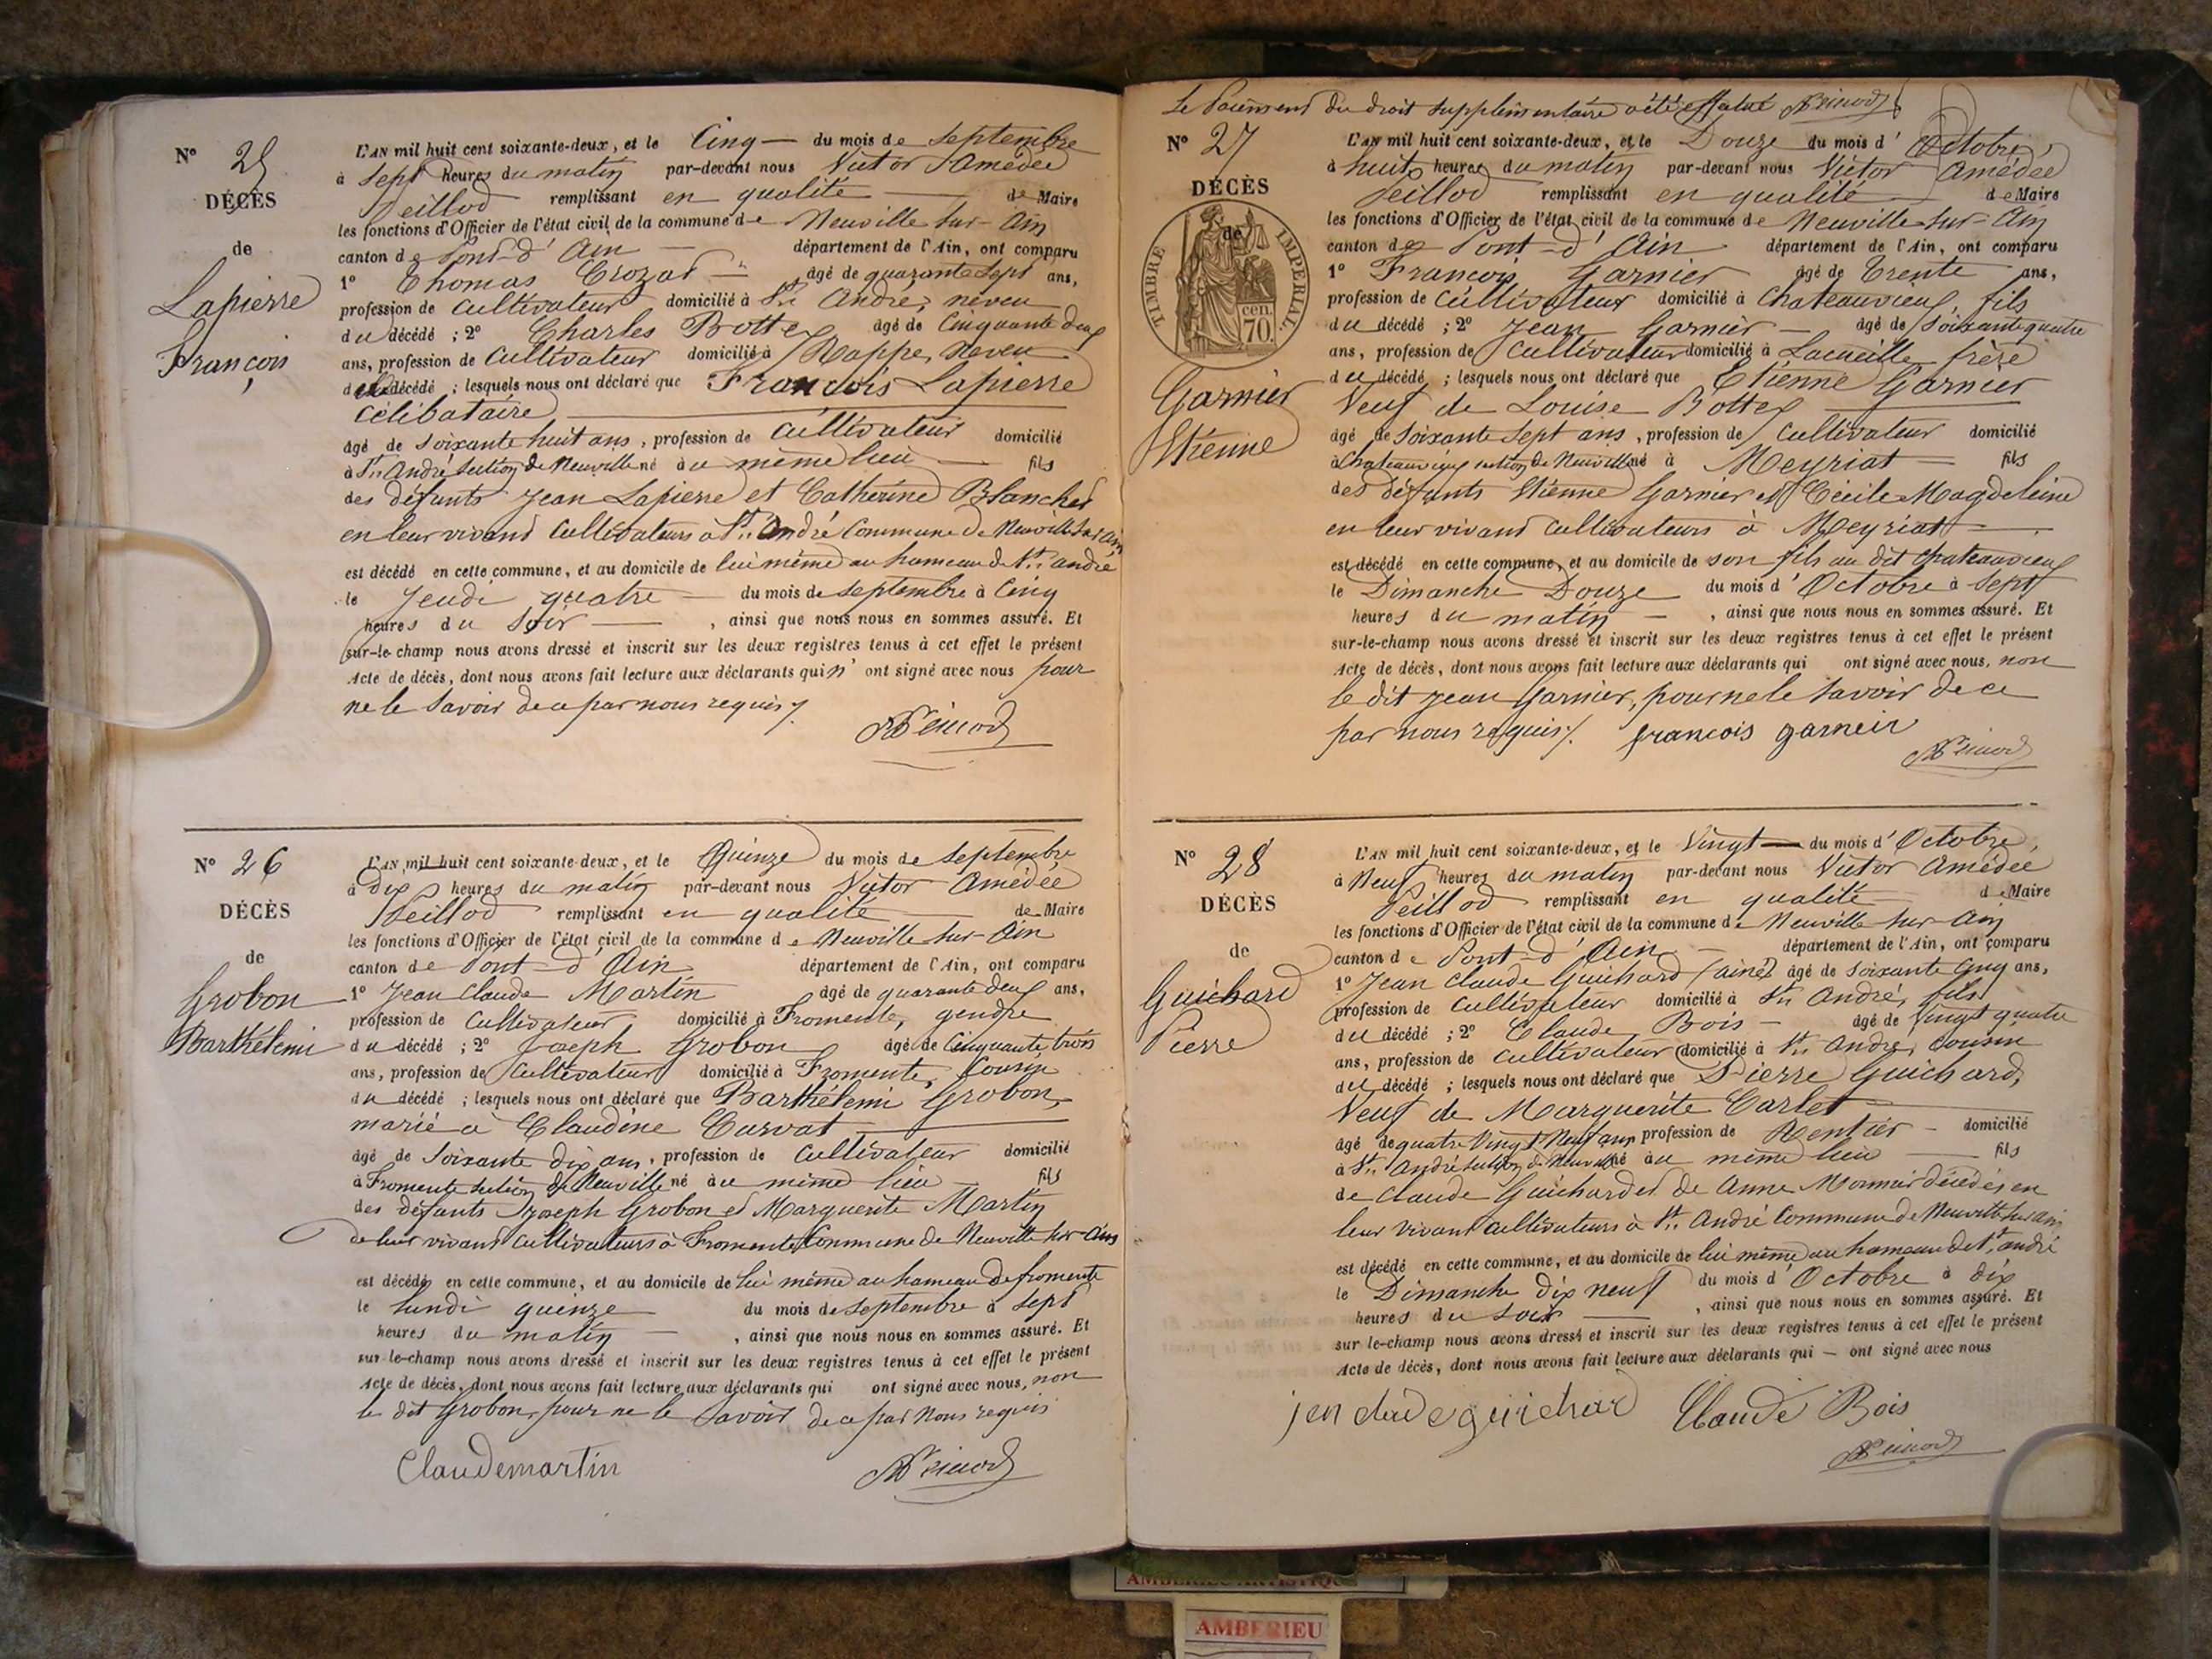 N° 25
DÉCÈS
de
Lapierre
François
L'AN mil huit cent soixante-deux, et le Cinq du mois de Septembre
à Sept heures du matin par-devant nous Victor Amédée
Peillod remplissant en qualité de Maire
les fonctions d'Officier de l'état civil de la commune de Neuville sur-Ain
canton de Pont-d'Ain département de l'Ain, ont comparu
1° Thomas Crozat âgé de quarante Sept ans,
profession de Cultivateur domicilié à St André, neveu
du décédé ; 2° Charles Bottex âgé de Cinquante deux
ans, profession de Cultivateur domicilié à Rappe, Neveu
du décédé ; lesquels nous ont déclaré que François Lapierre
Célibataire
âgé de Soixante huit ans, profession de Cultivateur domicilié
à St André Section de Neuville né au même lieu fils
des défunts Jean Lapierre et Catherine Blanchet
en leur vivant Cultivateurs à St André Commune de Neuville Sur Ain
est décédé en cette commune, et au domicile de lui même au hameau de St André
le Jeudi quatre du mois de Septembre à Cinq
heures du Soir, ainsi que nous nous en sommes assuré. Et
sur-le-champ nous avons dressé et inscrit sur les deux registres tenus à cet effet le présent
Acte de décès, dont nous avons fait lecture aux déclarants qui n'ont signé avec nous pour
ne le Savoir de ce par nous requis
N° 26
DÉCÈS
de
Grobon
Barthélemi
L'AN mil huit cent soixante-deux, et le Quinze du mois de Septembre
à dix heures du matin par-devant nous Victor Amédée
Peillod remplissant en qualité de Maire
les fonctions d'Officier de l'état civil de la commune de Neuville Sur-Ain
canton de Pont-d'Ain département de l'Ain, ont comparu
1° Jean Claude Martin âgé de quarante deux ans,
profession de Cultivateur domicilié à Fromente, gendre
du décédé ; 2° Joseph Grobon âgé de Cinquante trois
ans, profession de Cultivateur domicilié à Fromente, Cousin
du décédé ; lesquels nous ont déclaré que Barthélemi Grobon,
marié à Claudine Curvat
âgé de Soixante dix ans, profession de Cultivateur domicilié
à Fromente Section de Neuville né au même lieu fils
des défunts Joseph Grobon et Marguerite Martin
de leur vivant Cultivateurs à Fromente Commune de Neuville Sur-Ain
est décédé en cette commune, et au domicile de lui même au hameau de fromente
le lundi quinze du mois de Septembre à Sept
heures du matin, ainsi que nous nous en sommes assuré. Et
sur-le-champ nous avons dressé et inscrit sur les deux registres tenus à cet effet le présent
Acte de décès, dont nous avons fait lecture aux déclarants qui ont signé avec nous, non
le dit Grobon, pour ne le Savoir de ce par nous requis
Claudemartin
Le Paiement du droit Supplémentaire a été effectué
N° 27
DÉCÈS
de
TIMBRE IMPERIAL.
70. cen.
Garnier
Etienne
L'AN mil huit cent soixante-deux, et le Douze du mois d'Octobre,
à huit heures du matin par-devant nous Victor Amédée
Peillod remplissant en qualité de Maire
les fonctions d'Officier de l'état civil de la commune de Neuville-Sur-Ain
canton de Pont-d'Ain département de l'Ain, ont comparu
1° François Garnier âgé de Trente ans,
profession de Cultivateur domicilié à Chateauvieux, fils
du décédé ; 2° Jean Garnier âgé de Soixante quatre
ans, profession de Cultivateur domicilié à Lacueille, frère
du décédé ; lesquels nous ont déclaré que Etienne Garnier
Veuf de Louise Bottex
âgé de Soixante Sept ans, profession de Cultivateur domicilié
à Chateauvieux section de Neuville né à Meyriat fils
des défunts Etienne Garnier et Cécile Magdeleine
en leur vivant Cultivateurs à Meyriat
est décédé en cette commune, et au domicile de son fils au dit Chateauvieux
le Dimanche Douze du mois d'Octobre à Sept
heures du matin, ainsi que nous nous en sommes assuré. Et
sur-le-champ nous avons dressé et inscrit sur les deux registres tenus à cet effet le présent
Acte de décès, dont nous avons fait lecture aux déclarants qui ont signé avec nous, non
le dit Jean Garnier, pour ne le Savoir de ce
par nous requis. francois garneir
N° 28
DÉCÈS
de
Guichard
Pierre
L'AN mil huit cent soixante-deux, et le Vingt du mois d'Octobre,
à Neuf heures du matin par-devant nous Victor Amédée
Peillod remplissant en qualité de Maire
les fonctions d'Officier de l'état civil de la commune de Neuville Sur-Ain
canton de Pont-d'Ain département de l'Ain, ont comparu
1° Jean Claude Guichard (ainé) âgé de Soixante Cinq ans,
profession de Cultivateur domicilié à St André, fils
du décédé ; 2° Claude Bois âgé de Vingt quatre
ans, profession de Cultivateur domicilié à St André, Cousin
du décédé ; lesquels nous ont déclaré que Pierre Guichard,
Veuf de Marguerite Carlet
âgé de quatre Vingt Neuf ans profession de Rentier domicilié
à St André Section de Neuville né au même lieu fils
de Claude Guichard et de Anne Monnier décédés en
leur vivant Cultivateurs à St André Commune de Neuville Sur Ain
est décédé en cette commune, et au domicile de lui même au hameau de St andré
le Dimanche dix neuf du mois d'Octobre à dix
heures du Soir, ainsi que nous nous en sommes assuré. Et
sur le-champ nous avons dressé et inscrit sur les deux registres tenus à cet effet le présent
Acte de décès, dont nous avons fait lecture aux déclarants qui — ont signé avec nous
jen claude guichard Claude Bois
AMBERIEU